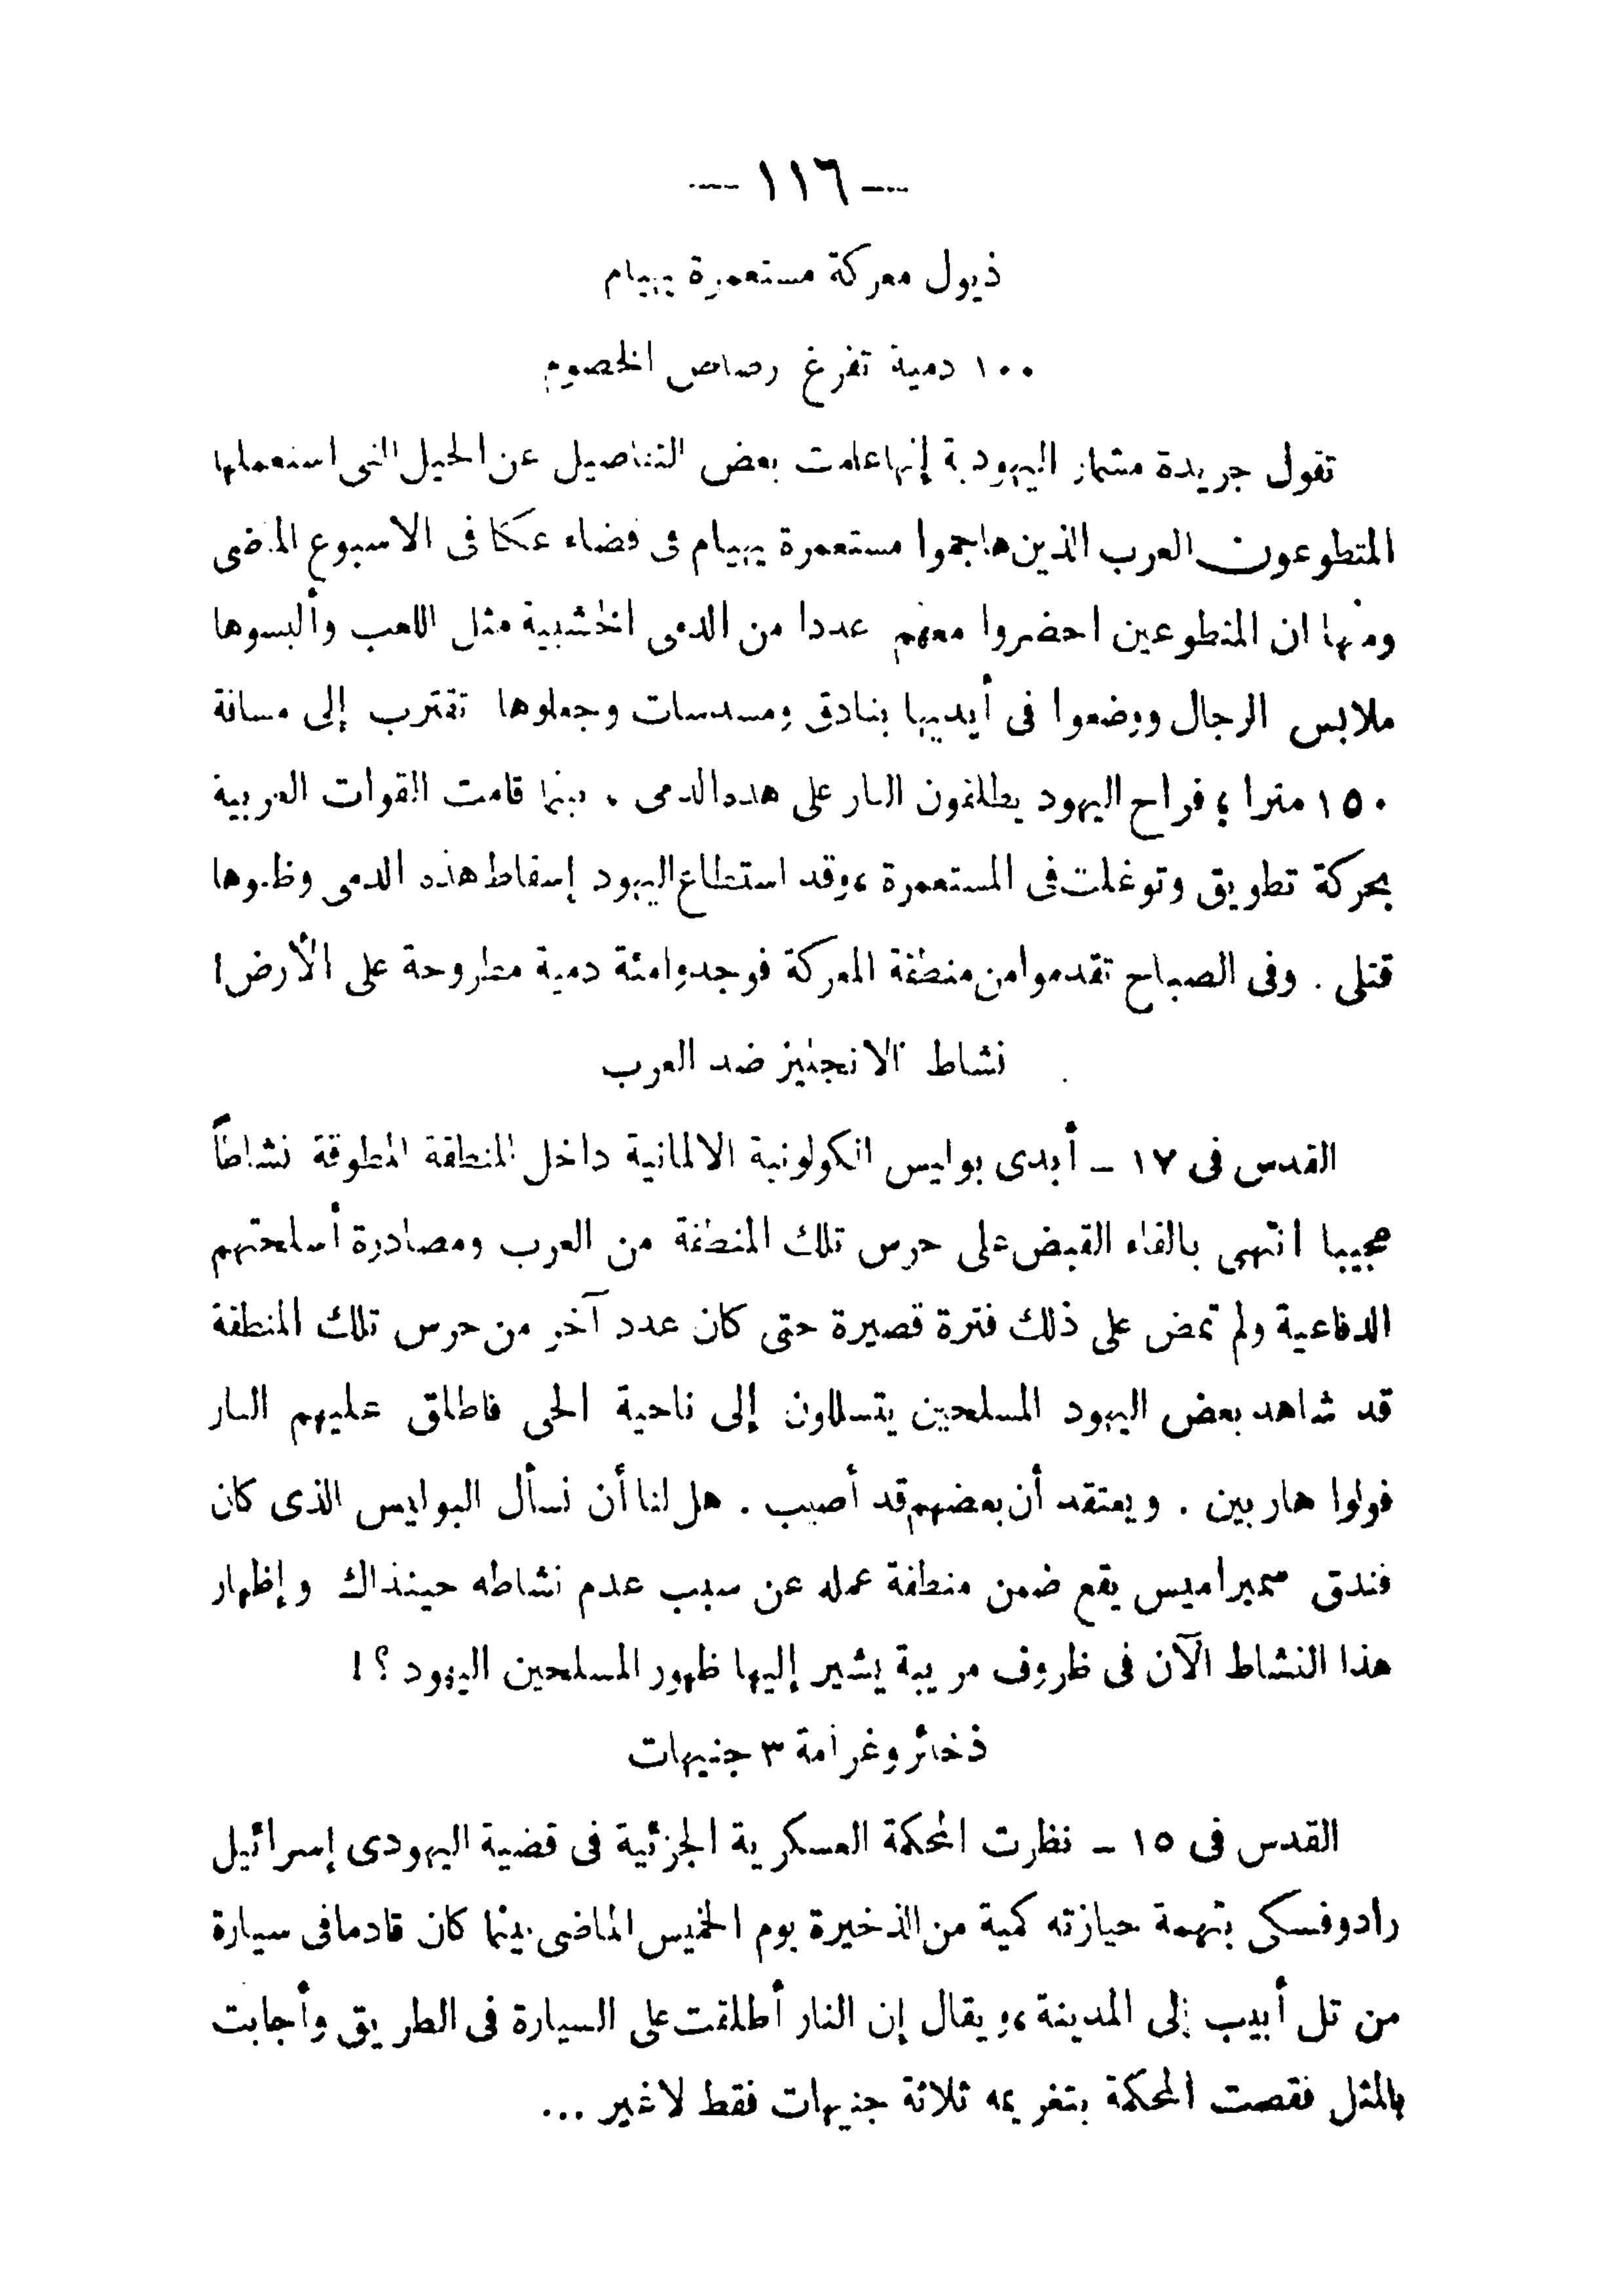 — ١١٦ —
ذيول معركة مستعمرة يهيام
١٠٠ دمية تفرغ رصاص الخصوم
تقول جريدة مشمار اليهودية إنها علمت بعض التفاصيل عن الحيل التى استعملها
المتطوعون العرب الذين هاجموا مستعمرة يهيام فى قضاء عكا فى الاسبوع الماضى
ومنها ان المتطوعين احضروا معهم عددا من الدمى الخشبية مثل اللعب وألبسوها
ملابس الرجال ووضعوا فى أيديها بنادق ومسدسات وجعلوها تقترب إلى مسافة
١٥٠ مترا ؛ فراح اليهود يطلقون النار على هذه الدمى . بينما قامت القوات العربية
بحركة تطويق وتوغلت فى المستعمرة ، وقد استطاع اليهود إسقاط هذه الدمى وظنوها
قتلى . وفى الصباح تقدموا من منطقة المعركة فوجدوا مئة دمية مطروحة على الأرض !
نشاط الانجليز ضد العرب
القدس فى ١٧ – أبدى بوليس الكولونية الالمانية داخل المنطقة المطوقة نشاطاً
عجيبا انتهى بالقاء القبض على حرس تلك المنطقة من العرب ومصادرة أسلحتهم
الدفاعية ولم تمض على ذلك فترة قصيرة حتى كان عدد آخر من حرس تلك المنطقة
قد شاهد بعض اليهود المسلحين يتسللون إلى ناحية الحى فاطلق عليهم النار
فولوا هاربين . ويعتقد أن بعضهم قد أصيب . هل لنا أن نسأل البوليس الذى كان
فندق سميراميس يقع ضمن منطقة عمله عن سبب عدم نشاطه حينذاك وإظهار
هذا النشاط الآن فى ظروف مريبة يشير إليها ظهور المسلحين اليهود ؟ !
ذخائر وغرامة ٣ جنيهات
القدس فى ١٥ – نظرت المحكمة العسكرية الجزئية فى قضية اليهودى إسرائيل
رادوفسكى بتهمة حيازته كمية من الذخيرة يوم الخميس الماضى بينما كان قادما فى سيارة
من تل أبيب إلى المدينة ، ويقال إن النار أطلقت على السيارة فى الطريق وأجابت
بالمثل فقصت المحكمة بتغريمه ثلاثة جنيهات فقط لا غير ...